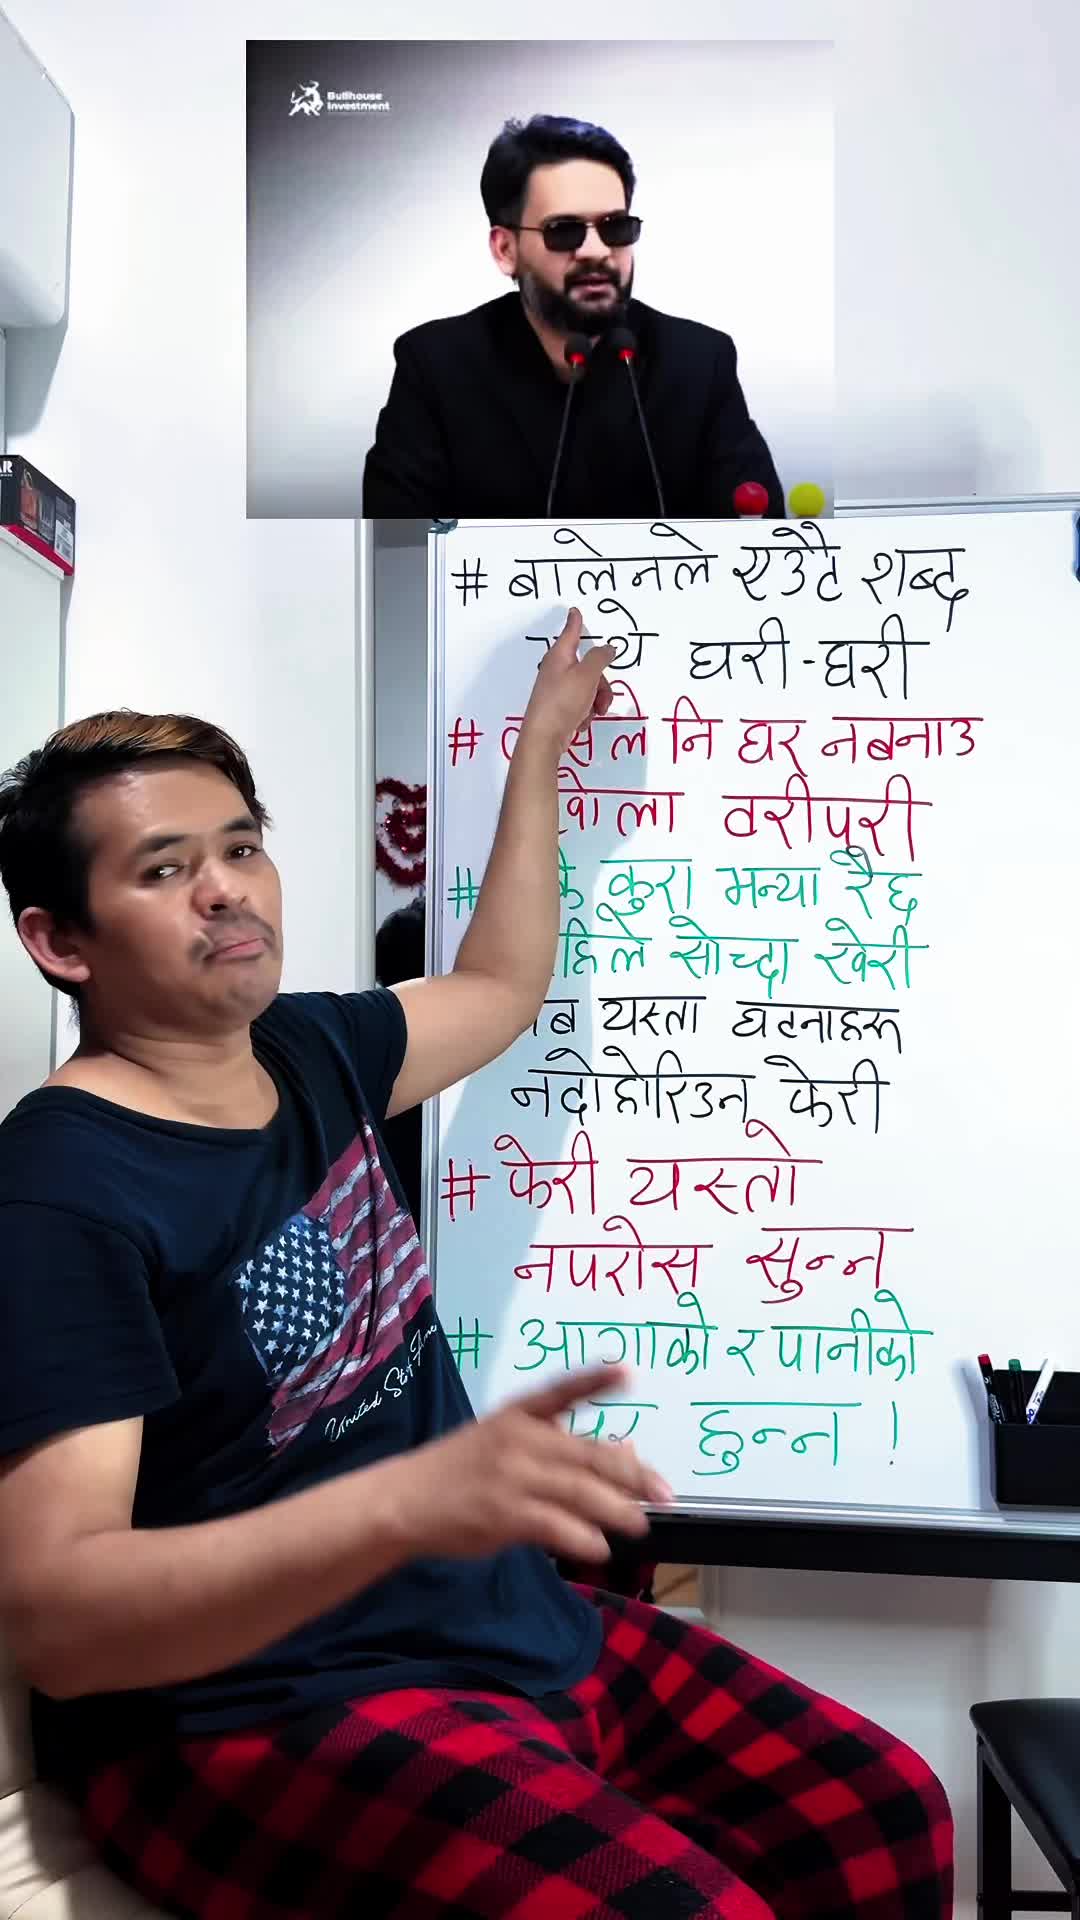 Bullhouse
Investment
AR
# बालेनले एउटै शब्द
घरी-घरी
# नि घर नबनाउ
वरीपरी
# कुरा मन्या रैछ
सोच्दा खेरी
यस्ता घटनाहरू
नदोहोरिउन् फेरी
# फेरी यस्तो
नपरोस् सुन्न
# आगाको र पानीको
हुन्न !
United States